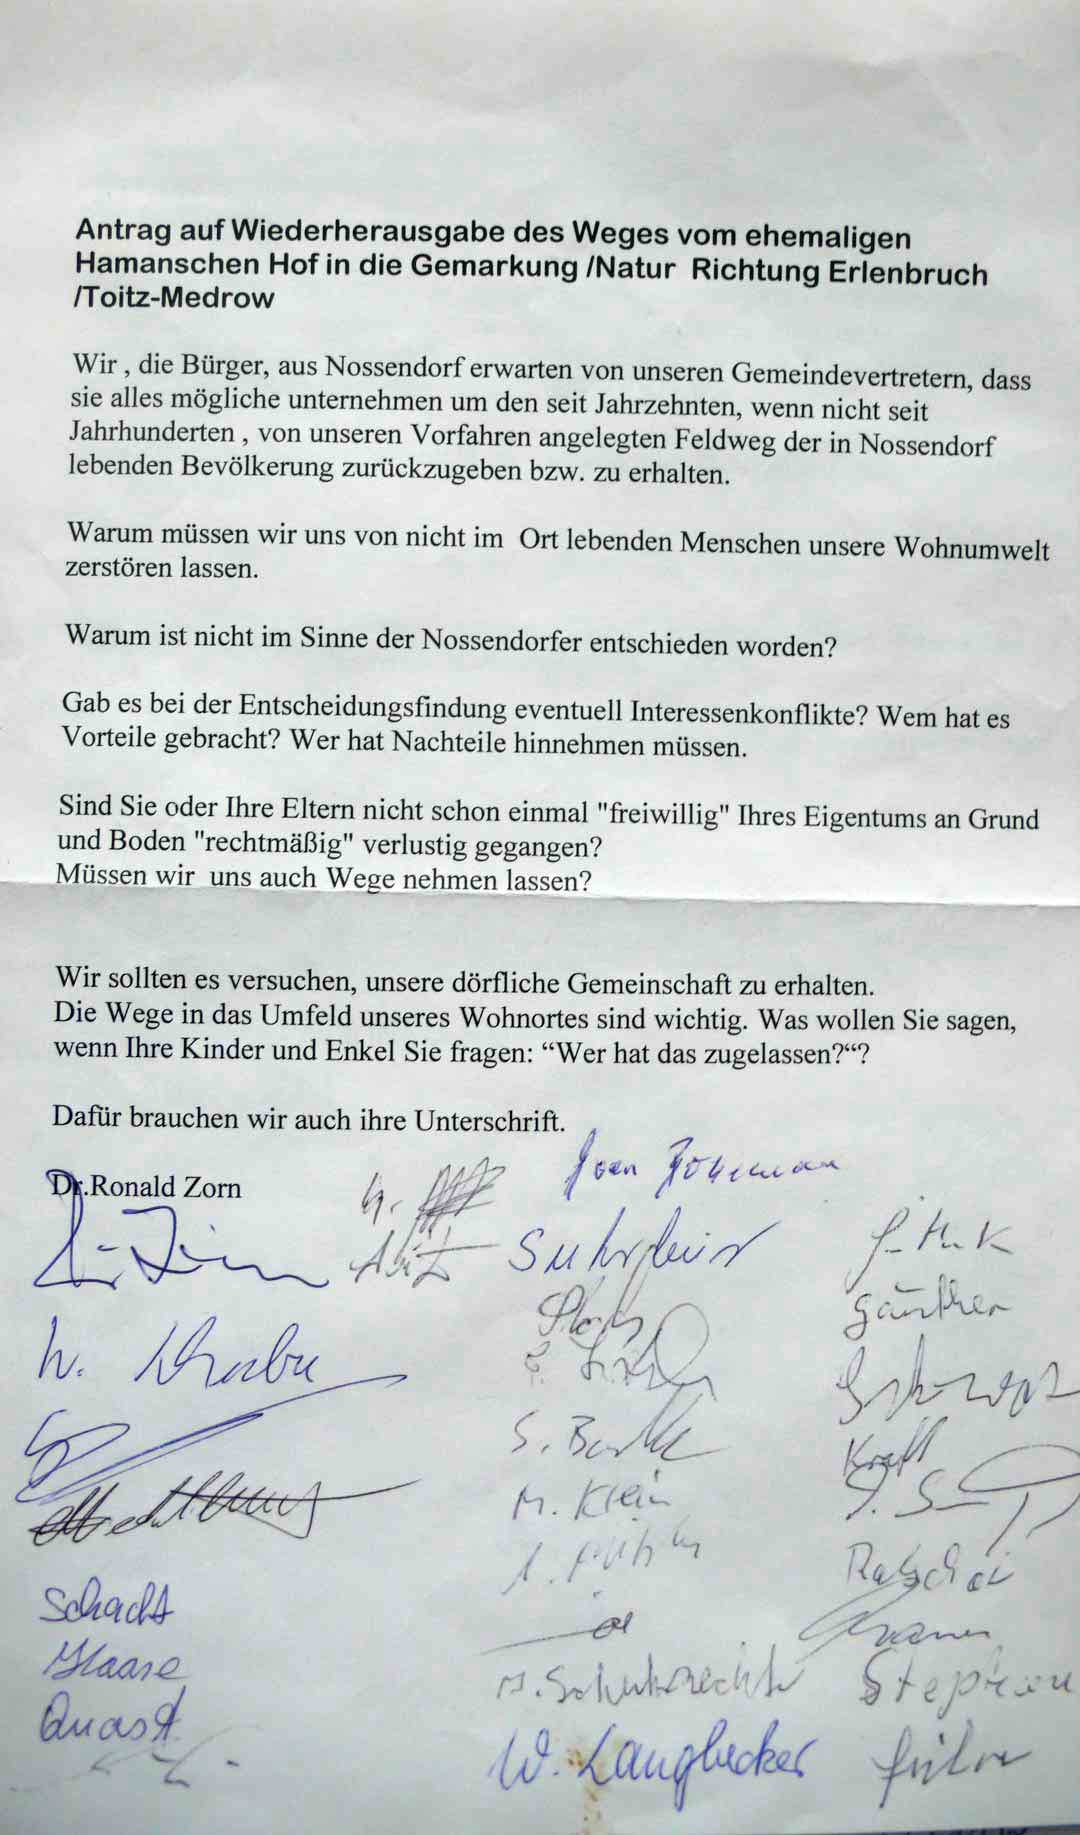 Antrag auf Wiederherausgabe des Weges vom ehemaligen
Hamanschen Hof in die Gemarkung /Natur Richtung Erlenbruch
/Toitz-Medrow
Wir , die Bürger, aus Nossendorf erwarten von unseren Gemeindevertretern, dass
sie alles mögliche unternehmen um den seit Jahrzehnten, wenn nicht seit
Jahrhunderten , von unseren Vorfahren angelegten Feldweg der in Nossendorf
lebenden Bevölkerung zurückzugeben bzw. zu erhalten.
Warum müssen wir uns von nicht im Ort lebenden Menschen unsere Wohnumwelt
zerstören lassen.
Warum ist nicht im Sinne der Nossendorfer entschieden worden?
Gab es bei der Entscheidungsfindung eventuell Interessenkonflikte? Wem hat es
Vorteile gebracht? Wer hat Nachteile hinnehmen müssen.
Sind Sie oder Ihre Eltern nicht schon einmal "freiwillig" Ihres Eigentums an Grund
und Boden "rechtmäßig" verlustig gegangen?
Müssen wir uns auch Wege nehmen lassen?
Wir sollten es versuchen, unsere dörfliche Gemeinschaft zu erhalten.
Die Wege in das Umfeld unseres Wohnortes sind wichtig. Was wollen Sie sagen,
wenn Ihre Kinder und Enkel Sie fragen: “Wer hat das zugelassen?“?
Dafür brauchen wir auch ihre Unterschrift.
Dr.Ronald Zorn
Günther
Kraft
M. Klein
Schacht
Haase
Quast
W. Langbecker